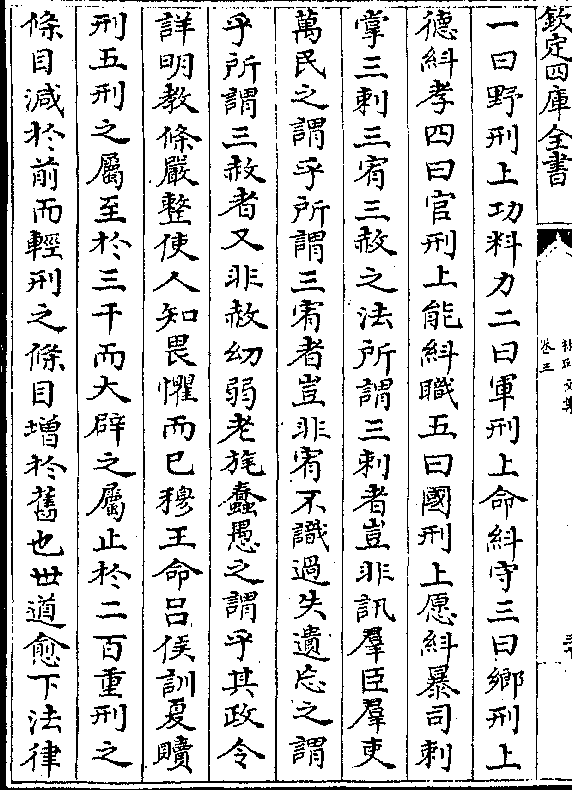 欽定四庫全書
卷三
一曰野刑上功料力二曰軍刑上命糾守三曰鄉刑上
德糾孝四曰官刑上能糾職五曰國刑上愿糾暴司刺
掌三刺三宥三赦之法所謂三刺者豈非訊羣臣羣吏
萬民之謂乎所謂三宥者豈非宥不識過失遺忘之謂
乎所謂三赦者又非赦幼弱老旄蠢愚之謂乎其政令
詳明教條嚴整使人知畏懼而已穆王命吕侯訓夏贖
刑五刑之屬至於三千而大辟之屬止於二百重刑之
條目減於前而輕刑之條目增於舊也世道愈下法律